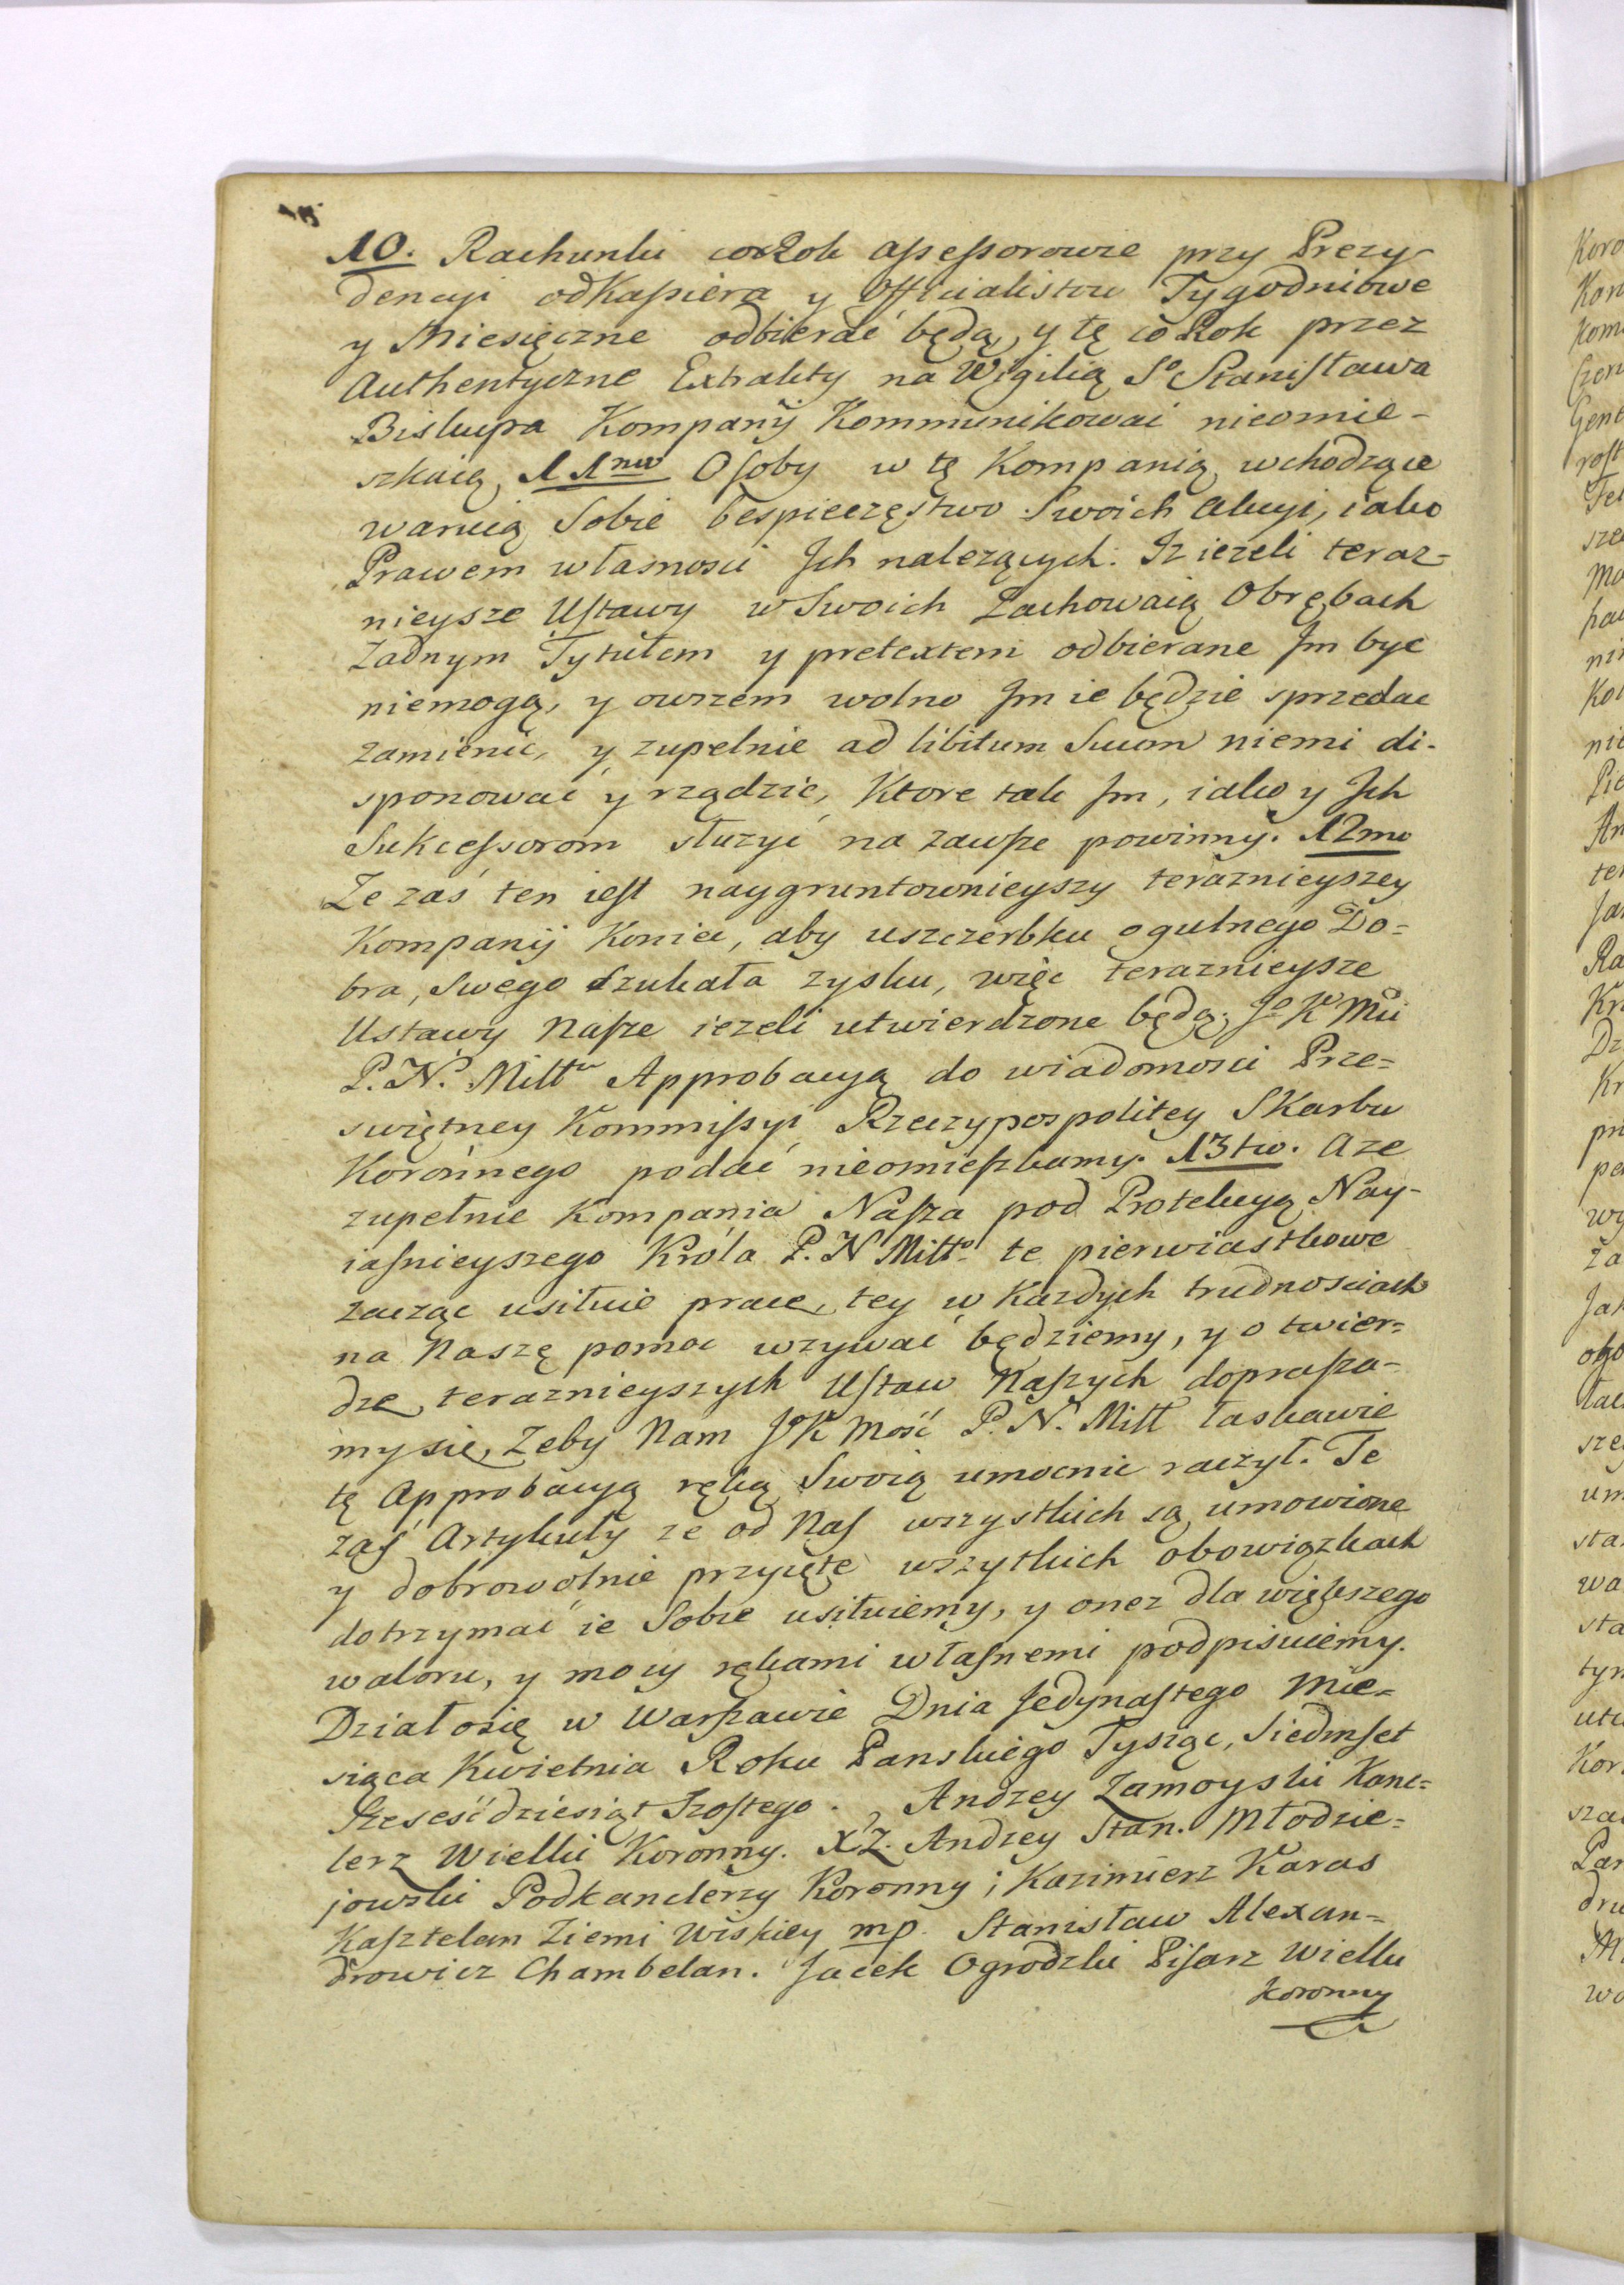 10. Rachunki corok assessorowie przy Prezy-
dencyi od Kassiera y Officialistow Tygodniowe
y Miesięczne odbierać będą, y tę co Rok przez
Authentyczne Extrakty na Wigilią So Stanisława
Biskupa Kompanij Kommunikować nieomie-
szkaią, 11mo Osoby w tę Kompanią wchodzące
waruią Sobie bespieczęstwo Swoich akcyi, iako
Prawem własności Jch nalezących. Jz iezeli teraz-
nieysze Ustawy w Swoich Zachowaią Obrębach
Zadnym Tytułem y pretextem odbierane Jm byc
niemogą, y owszem wolno Jm ie będzie sprzedac
zamienic, y zupełnie ad libitum Suum niemi di-
sponować y rządzić, Ktore tak Jm, iako y Jch
Sukcessorom słuzyć na zawsze powinny. 12mo
Ze zaś ten iest naygruntownieyszy teraznieyszey
Kompanij Koniec, aby uszczerbku ogulnego Do=
bra, Swego szukała zysku, więc teraznieysze
Ustawy Nasze iezeli utwierdzone będą Jo K Mci
P. N. Miłł Approbacyą do wiadomosci Prze=
swiętney Kommissyi Rzeczypospolitey Skarbu
Koronnego podać nieomieszkamy. 13tio. aze
zupełnie Kompania Nasza pod Protekcyą Nay-
iasnieyszego Króla P. N Miłło te pierwiastkowe
zacząc usiłuie prace, tey w Kazdych trudnosciach
na Naszę pomoc wzywać będziemy, y o twier=
dzę teraznieyszych Ustaw Naszych doprasza-
my się, Zeby Nam JK Mość P. N. Miłł łaskawie
tę Approbacyą ręką Swoią umocnic raczył. Te
zaś Artykuły ze od Nas wszystkich są umowione
y dobrowolnie przyięte wszytkich obowiązkach
dotrzymać ie Sobie usiłuiemy, y onez dla większego
waloru, y mocy rękami własnemi podpisuiemy.
Działosię w Warszawie Dnia Jedynastego Mie=
siąca Kwietnia Roku Panskiego Tysząc, Siedmset
Szesćdziesiąt Szostego. Andrzey Zamoyski Kanc=
lerz Wielki Koronny. XZ. Andrzey Stan. Młodzie=
jowski Podkanclerzy Koronny; Kazimierz Karas
Kasztelan Ziemi Wiskiey mp. Stanisław Alexan=
drowicz Chambelan. Jacek Ogrodzki Pisarz Wielki
Koronny